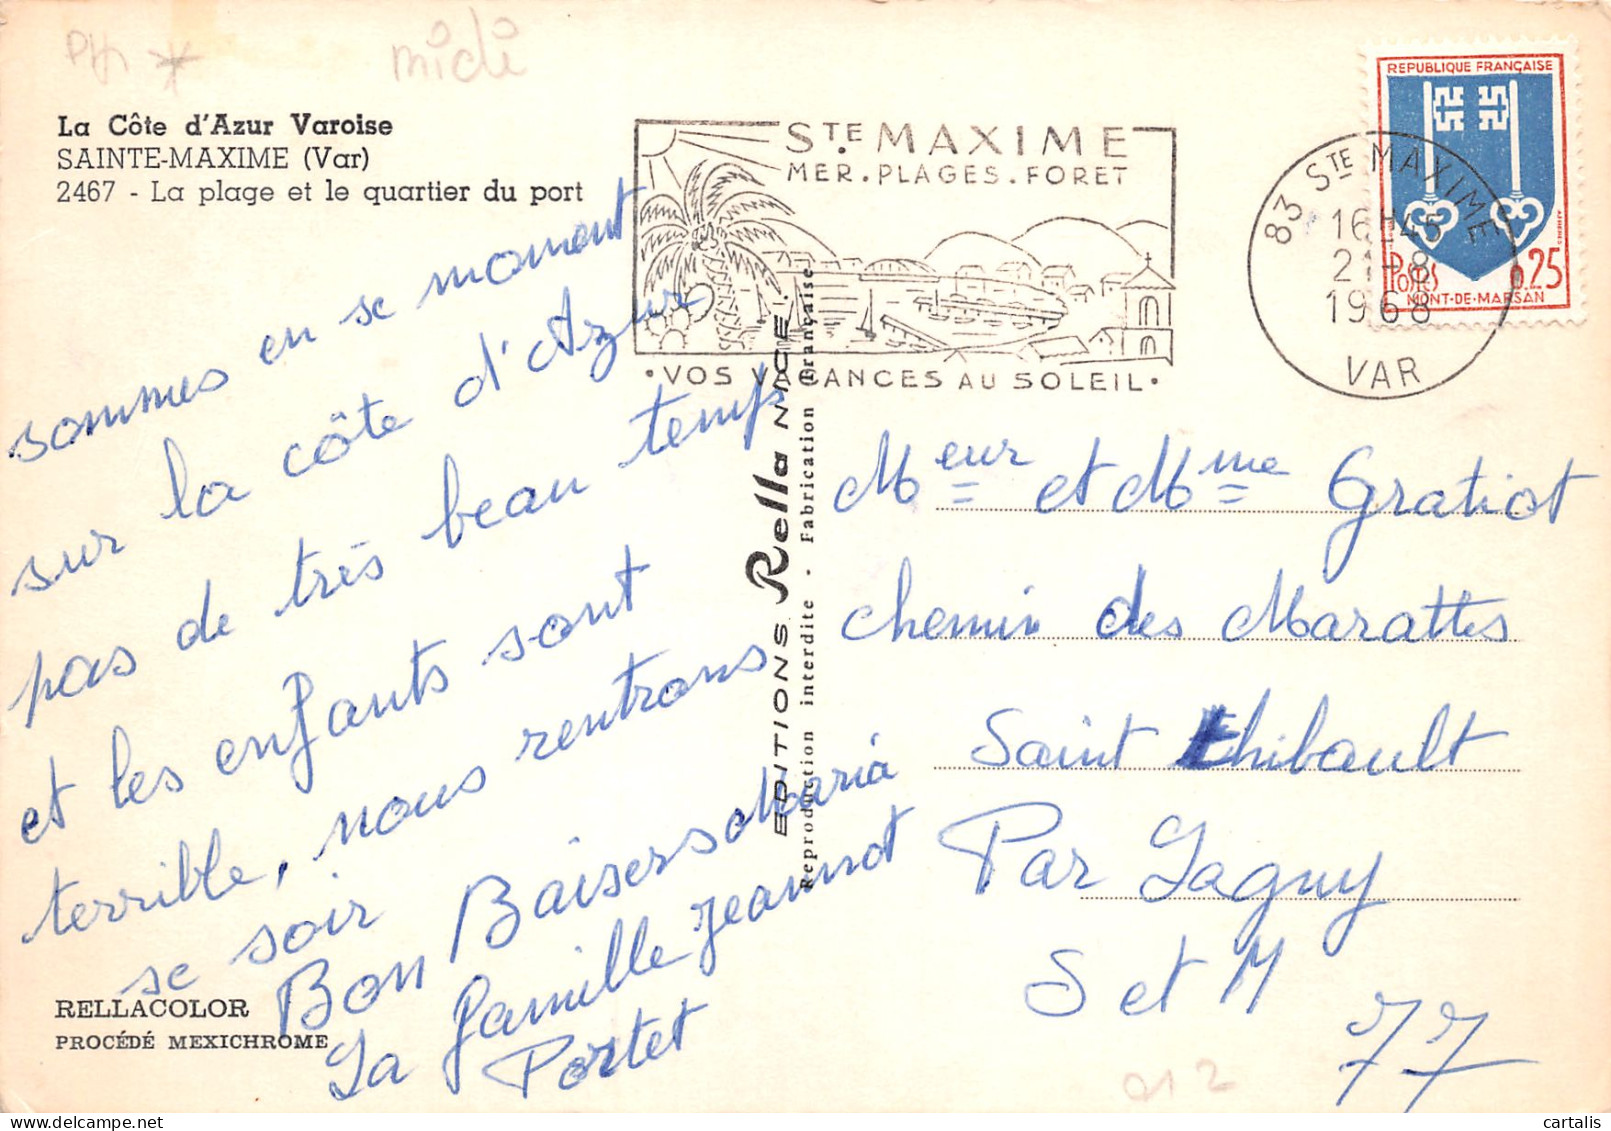 PH *
midi
La Côte d'Azur Varoise
SAINTE-MAXIME (Var)
2467 - La plage et le quartier du port
sommes en se moment
sur la côte d'Azur
pas de très beau temps
et les enfants sont
terrible, nous rentrons
se soir
Bon Baisers Maria
La famille Jeannot
Portet
RELLACOLOR
PROCÉDÉ MEXICHROME
EDITIONS Rella NICE.
Reproduction interdite - Fabrication Française
STE MAXIME
MER.PLAGES.FORET
•VOS VACANCES AU SOLEIL•
83 STE MAXIME
16H45
21-8
1968
VAR
REPUBLIQUE FRANÇAISE
POSTES 0.25
MONT-DE-MARSAN
Meur et Mme Gratiot
chemin des Marattes
Saint Thibault
Par Lagny
S et M
77
912
cartalis